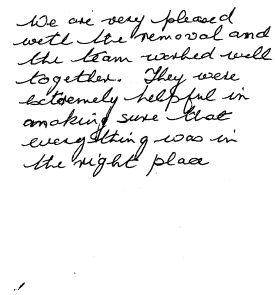 We are very pleased
with the removal and
the team worked well
together. They were
extremely helpful in
making sure that
everything was in
the right place